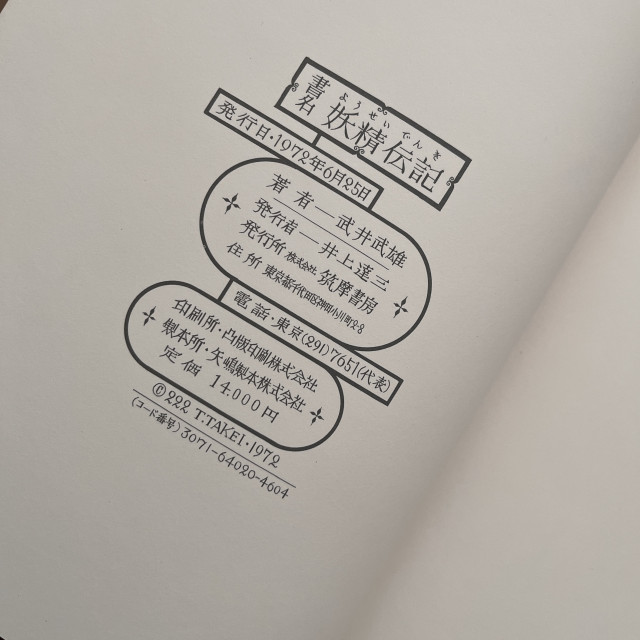 書名 妖精伝記
ようせいでんき
発行日・1972年6月25日
著者―武井武雄
発行者―井上達三
発行所 株式会社 筑摩書房
住所 東京都千代田区神田小川町2-8
電話・東京(291)7651(代表)
印刷所・凸版印刷株式会社
製本所・矢嶋製本株式会社
定価 14.000円
©222 T.TAKEI・1972
(コード番号)3071-64020-4604